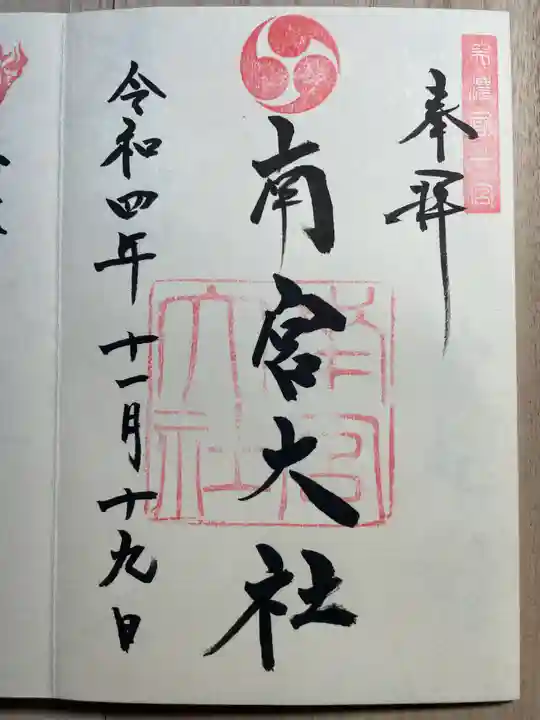 奉拝
美濃國一宮
南宮大社
南宮大社
令和四年十一月十九日